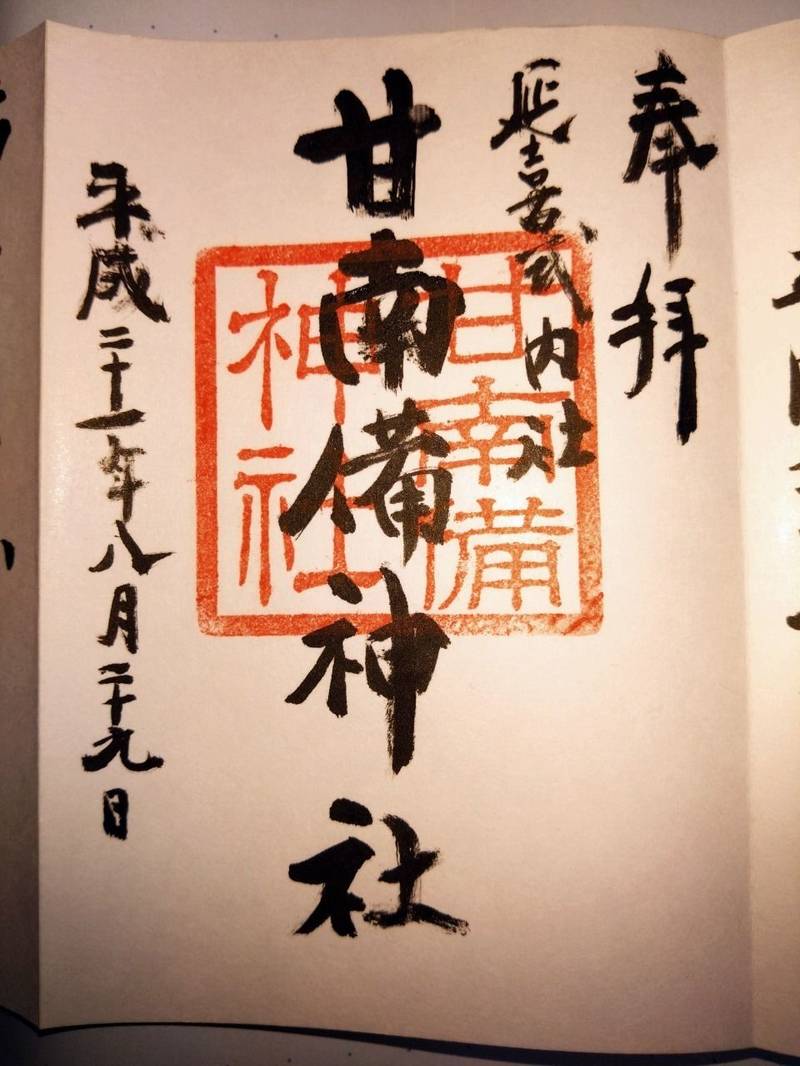 奉拝
延喜式内社
甘南備神社
甘南備
神社
平成二十一年八月二十九日